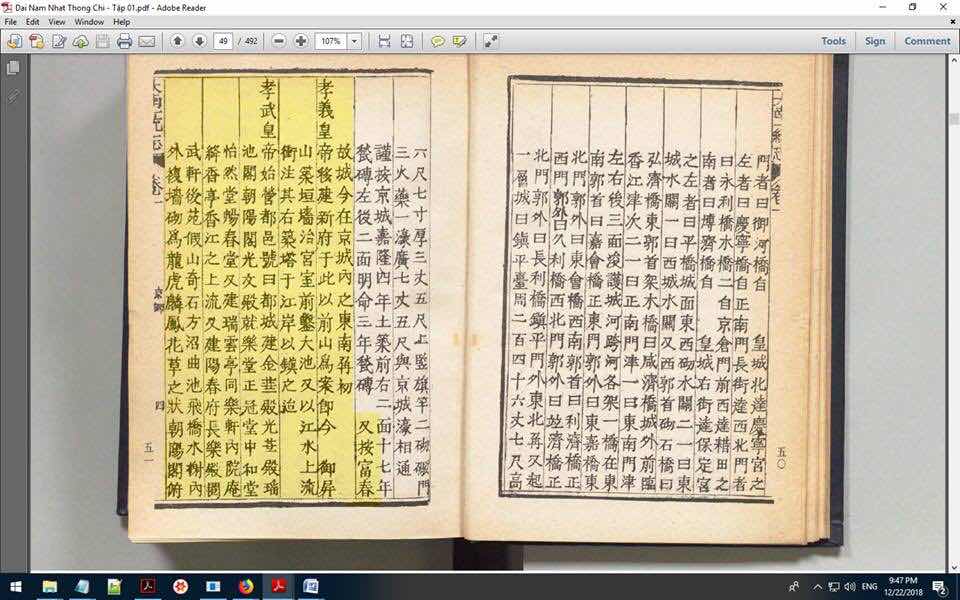 Dai Nam Nhat Thong Chi - Tập 01.pdf - Adobe Reader
File Edit View Window Help
49 / 492 107% Tools Sign Comment
門者曰御河橋自 皇城北達慶寧宮之
左者曰慶寧橋自正南門長街達西北門者
曰永利橋水橋二自京倉門前西達耤田之
南者曰博濟橋自 皇城右街達保定宮
之左者曰平橋城面東西砌水關二一曰東
城水關一曰西城水關又西郭首砌石橋曰
弘濟橋東郭首架木橋曰咸濟橋城外前臨
香江津次二一曰正南門津一曰東南門津
左右後三面浚護城河跨河各架一橋在東
南郭首曰嘉會橋正東門郭外曰東嘉橋東
北門郭外曰東會橋西南郭首曰利濟橋正
西門郭外曰久利橋西北門郭外曰濟橋正
北門郭外曰長利橋鎮平門外東北再又起
一層城曰鎮平臺周二百四十六丈七尺高
五〇
六尺七寸厚三丈五尺上竪旗竿二砌礟門
三火藥一濠廣七丈五尺與京城濠相通
謹按京城嘉隆四年土築前右二面十七年
甃磚左後二面明命三年甃磚 又按富春
故城今在京城內之東南再初
孝義皇帝移建新府于此以前山爲案卽今 御屏
山築垣墻治宮室前鑿大池又以江水上流
衝注其右築塔于江岸以鎮之迨
孝武皇帝始營都邑號曰都城建金華殿光華殿瑤
池閣朝陽閣光文殿就樂堂正冠堂中和堂
怡然堂暢春堂又建瑞雲亭同樂軒內院庵
絳香亭香江之上流又建陽春府長樂殿閱
武軒後苑假山奇石方沼曲池飛橋水榭內
外複墻砌爲龍虎麟鳳花草之狀朝陽閣俯
京師 四
五一
ENG 9:47 PM
12/22/2018
2